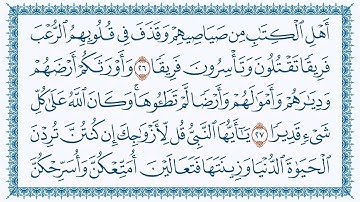 أَهْلِ الْكِتَٰبِ مِن صَيَاصِيهِمْ وَقَذَفَ فِي قُلُوبِهِمُ الرُّعْبَ
فَرِيقًا تَقْتُلُونَ وَتَأْسِرُونَ فَرِيقًا ٢٦ وَأَوْرَثَكُمْ أَرْضَهُمْ
وَدِيَٰرَهُمْ وَأَمْوَٰلَهُمْ وَأَرْضًا لَّمْ تَطَـُٔوهَا ۚ وَكَانَ اللَّهُ عَلَىٰ كُلِّ
شَيْءٍ قَدِيرًا ٢٧ يَٰٓأَيُّهَا النَّبِيُّ قُل لِّأَزْوَٰجِكَ إِن كُنتُنَّ تُرِدْنَ
الْحَيَوٰةَ الدُّنْيَا وَزِينَتَهَا فَتَعَالَيْنَ أُمَتِّعْكُنَّ وَأُسَرِّحْكُنَّ